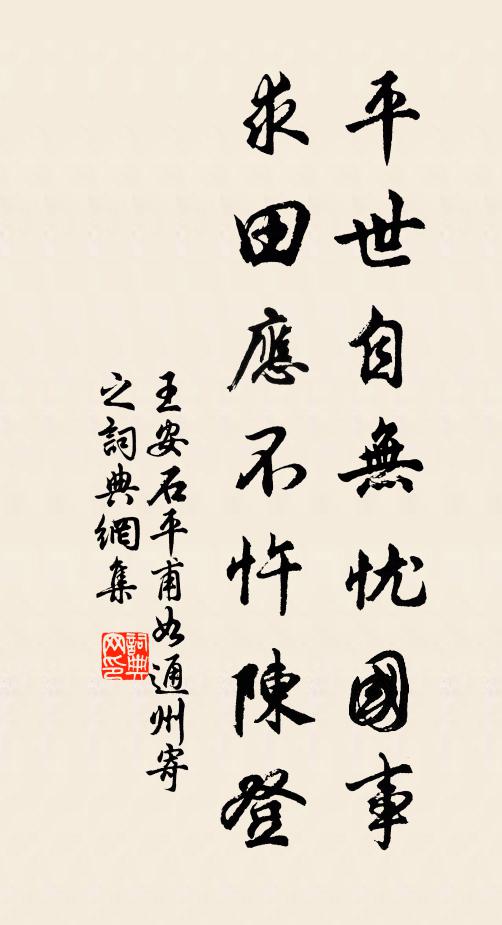 平世自無忧國事
求田應不忤陳登
王安石平甫如通州寄
之詞典網集
詞典
网印